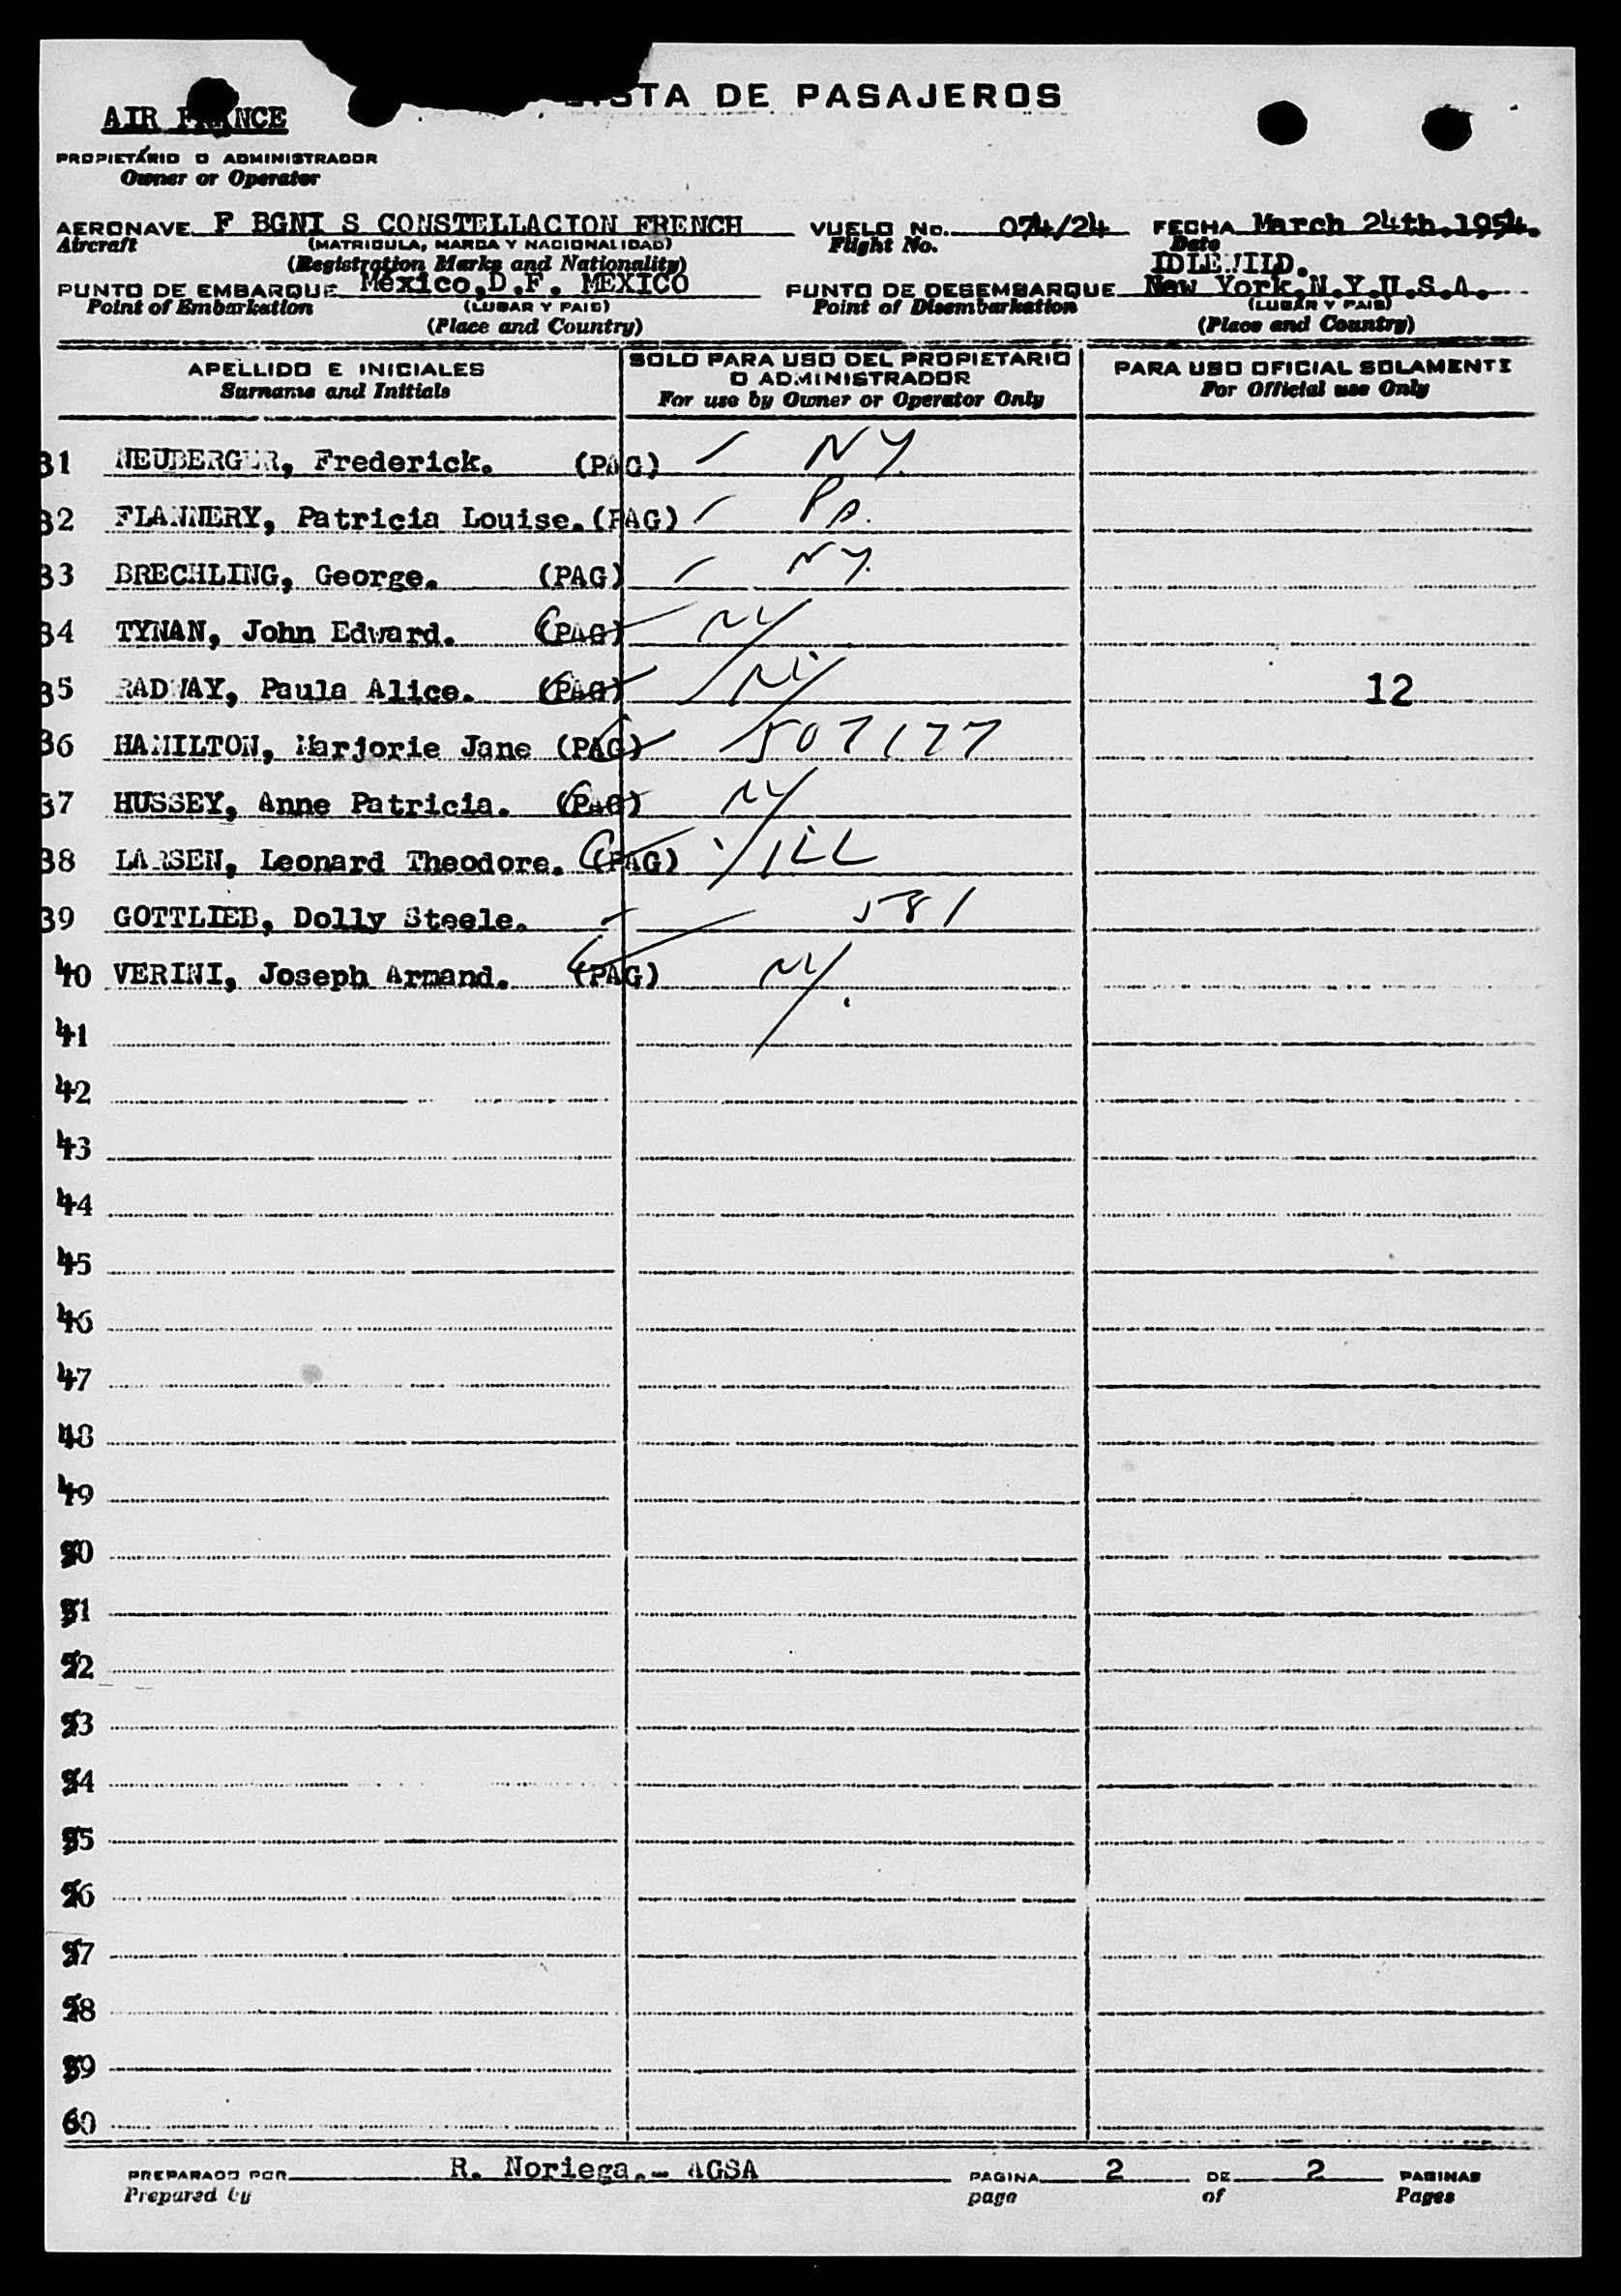 DE PASAJEROS
AIR FRANCE
PROPIETARIO O ADMINISTRADOR
Owner or Operator
AERONAVE F BGNI S CONSTELLACION FRENCH VUELO No. 074/24 FECHA March 24th.1954.
Aircraft (MATRICULA, MARCA Y NACIONALIDAD) Flight No. Date
(Registration Marks and Nationality) IDLEWILD.
PUNTO DE EMBARQUE México,D.F. MEXICO PUNTO DE DESEMBARQUE New York.N.Y.U.S.A.
Point of Embarkation (LUGAR Y PAIS) Point of Disembarkation (LUGAR Y PAIS)
(Place and Country) (Place and Country)
APELLIDO E INICIALES SOLO PARA USO DEL PROPIETARIO O ADMINISTRADOR PARA USO OFICIAL SOLAMENTE
Surname and Initials For use by Owner or Operator Only For Official use Only
31 NEUBERGER, Frederick. (PAG) NY.
32 FLANNERY, Patricia Louise. (PAG) Pa.
33 BRECHLING, George. (PAG) NY.
34 TYNAN, John Edward. (PAG) NY
35 RADWAY, Paula Alice. (PAG) NY 12
36 HAMILTON, Marjorie Jane (PAG) 507177
37 HUSSEY, Anne Patricia. (PAG) NY
38 LARSEN, Leonard Theodore. (PAG) ILL
39 GOTTLIEB, Dolly Steele. 581
40 VERINI, Joseph Armand. (PAG) NY.
41
42
43
44
45
46
47
48
49
50
51
52
53
54
55
56
57
58
59
60
PREPARADO POR R. Noriega.- AGSA PAGINA 2 DE 2 PAGINAS
Prepared by page of Pages